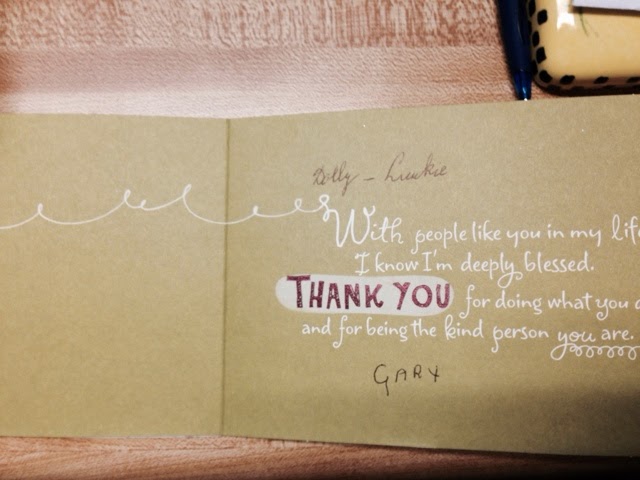 Dolly -
With people like you in my life
I know I'm deeply blessed.
THANK YOU for doing what you d
and for being the kind person you are.
GARY